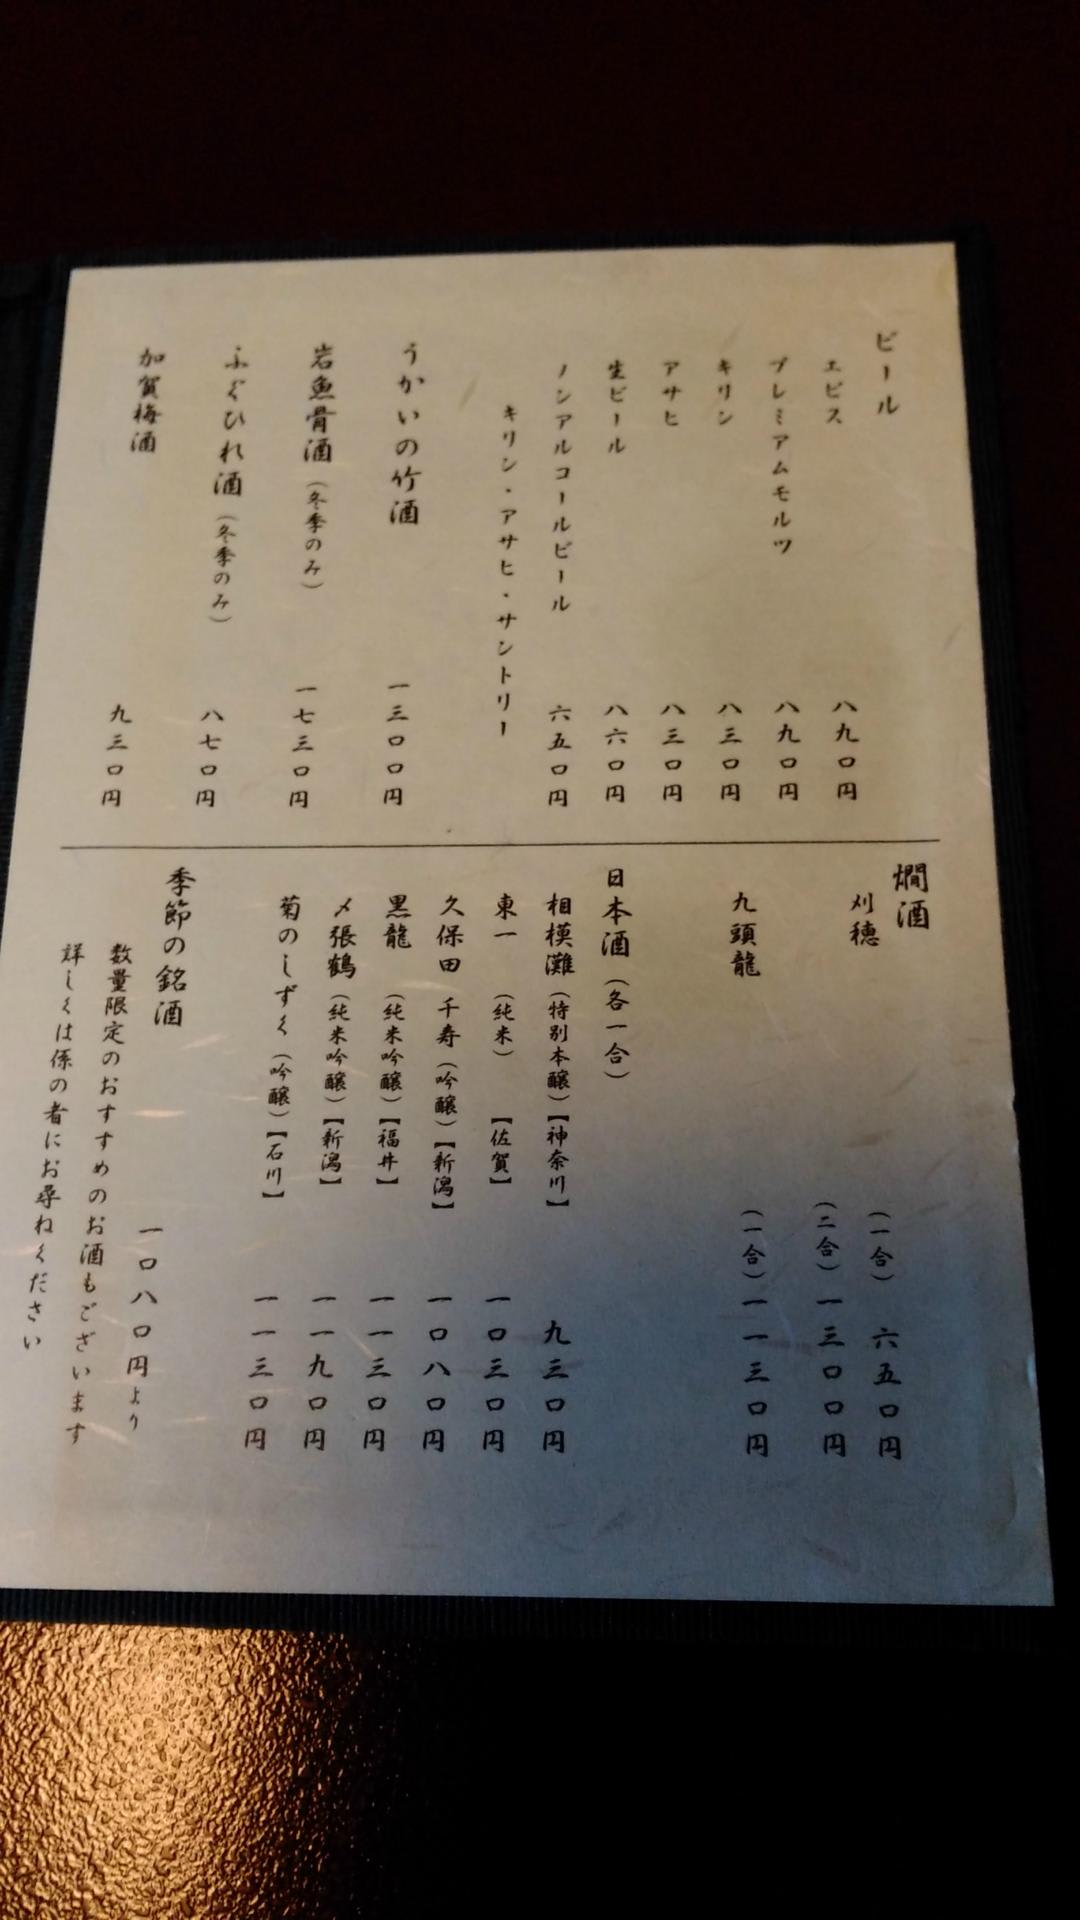 ビール
エビス 八九〇円
プレミアムモルツ 八九〇円
キリン 八三〇円
アサヒ 八三〇円
生ビール 八六〇円
ノンアルコールビール 六五〇円
キリン・アサヒ・サントリー
うかいの竹酒 一三〇〇円
岩魚骨酒（冬季のみ） 一七三〇円
ふぐひれ酒（冬季のみ） 八七〇円
加賀梅酒 九三〇円
燗酒
刈穂 （一合） 六五〇円
（二合） 一三〇〇円
九頭龍 （一合） 一一三〇円
日本酒（各一合）
相模灘（特別本醸）【神奈川】 九三〇円
東一（純米）【佐賀】 一〇三〇円
久保田 千寿（吟醸）【新潟】 一〇八〇円
黒龍（純米吟醸）【福井】 一一三〇円
〆張鶴（純米吟醸）【新潟】 一一九〇円
菊のしずく（吟醸）【石川】 一一三〇円
季節の銘酒 一〇八〇円より
数量限定のおすすめのお酒もございます
詳しくは係の者にお尋ねください